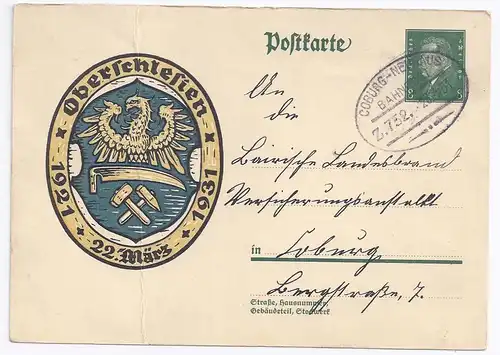 Postkarte
Oberschlesien
1921
1931
22. März
8
8
COBURG-NEU
BAHN
Z.752
An
die
Bairische Landesbrand
Versicherungsanstalt
in Coburg
Bergstraße, 7.
Straße, Hausnummer,
Gebäudeteil, Stockwerk